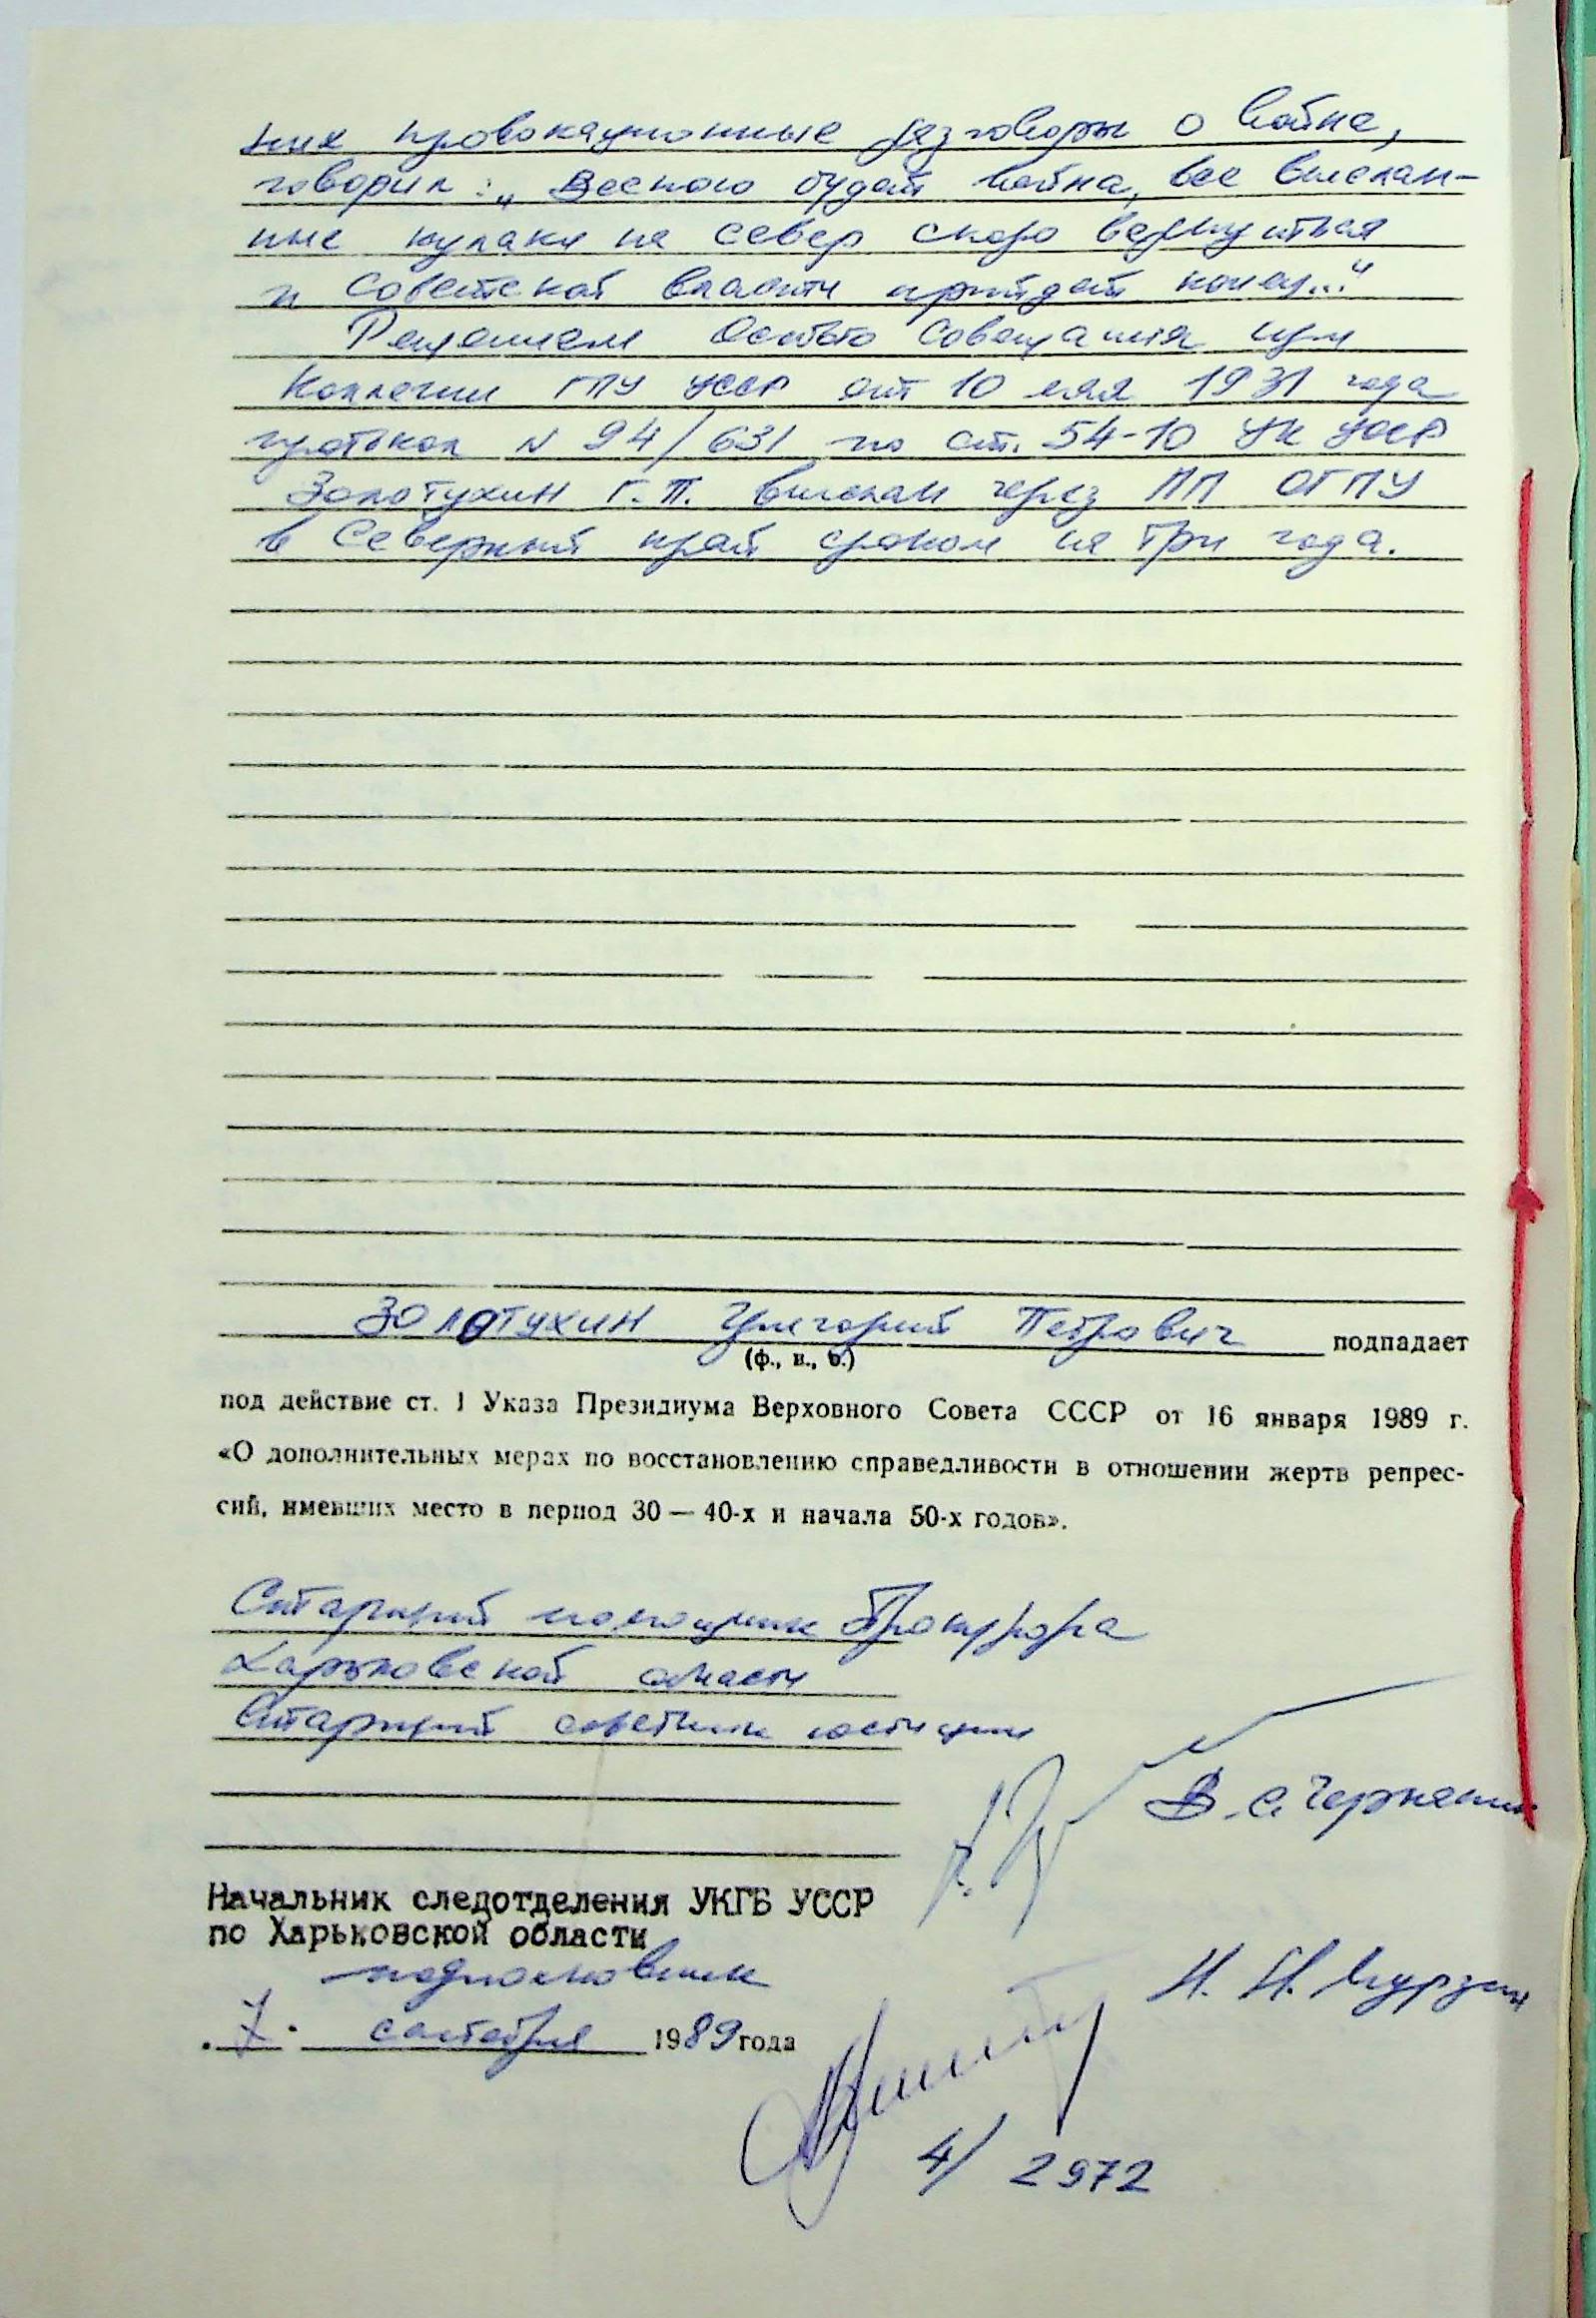 ния провокационные разговоры о войне,
говорил: „Весною будет война, все выслан-
ные кулаки на север скоро вернуться
и Советской власти прийдет конец..."
Решением Особого Совещания при
Коллегии ГПУ УССР от 10 мая 1931 года
протокол N 94/631 по ст. 54-10 УК УССР
Золотухин Г.П. выслан через ПП ОГПУ
в Северный край сроком на три года.
Золотухин Григорий Петрович подпадает
(ф., и., о.)
под действие ст. 1 Указа Президиума Верховного Совета СССР от 16 января 1989 г.
«О дополнительных мерах по восстановлению справедливости в отношении жертв репрес-
сий, имевших место в период 30 — 40-х и начала 50-х годов».
Старший помощник Прокурора
Харьковской области
Старший советник юстиции
В. С.
Начальник следотделения УКГБ УССР
по Харьковской области
подполковник
Н. Н. Мурзин
.7. сентября 1989 года
4/ 2972